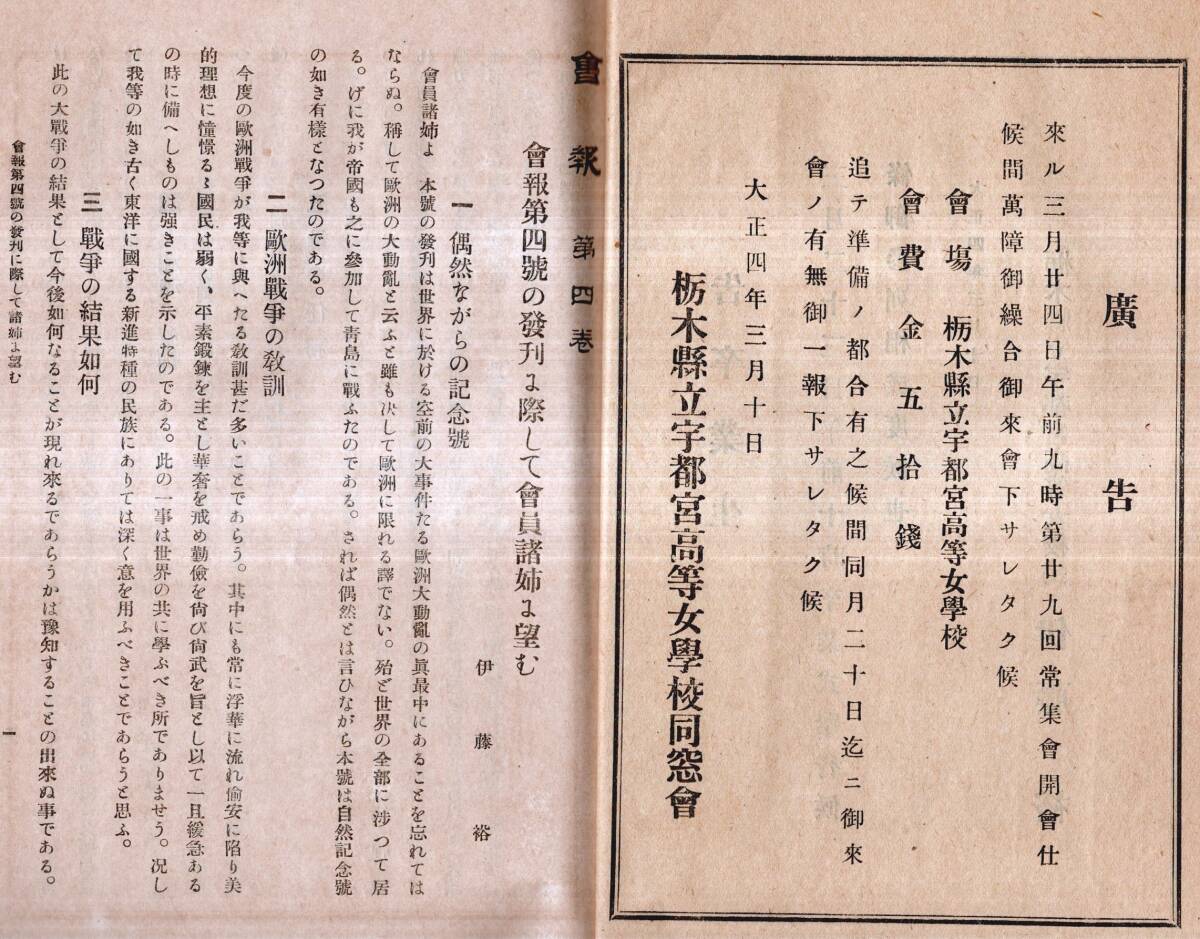 廣告
來ル三月廿四日午前九時第廿九回常集會開會仕
候間萬障御繰合御來會下サレタク候
會塲 栃木縣立宇都宮高等女學校
會費金五拾錢
追テ準備ノ都合有之候間同月二十日迄ニ御來
會ノ有無御一報下サレタク候
大正四年三月十日
栃木縣立宇都宮高等女學校同窓會
會報第四卷
會報第四號の發刊に際して會員諸姉に望む
伊藤裕
一 偶然ながらの記念號
會員諸姉よ 本號の發刊は世界に於ける空前の大事件たる歐洲大動亂の眞最中にあることを忘れては
ならぬ。稱して歐洲の大動亂と云ふと雖も决して歐洲に限れる譯でない。殆ど世界の全部に渉つて居
る。げに我が帝國も之に參加して靑島に戰ふたのである。されば偶然とは言ひながら本號は自然記念號
の如き有樣となつたのである。
二 歐洲戰爭の敎訓
今度の歐洲戰爭が我等に與へたる敎訓甚だ多いことであらう。其中にも常に浮華に流れ偷安に陷り美
的理想に憧憬るゝ國民は弱く、平素鍛鍊を主とし華奢を戒め勤儉を尙び尙武を旨とし以て一旦緩急ある
の時に備へしものは强きことを示したのである。此の一事は世界の共に學ぶべき所でありませう。况し
て我等の如き古く東洋に國する新進特種の民族にありては深く意を用ふべきことであらうと思ふ。
三 戰爭の結果如何
此の大戰爭の結果として今後如何なることが現れ來るであらうかは豫知することの出來ぬ事である。
會報第四號の發刊に際して諸姉に望む
一